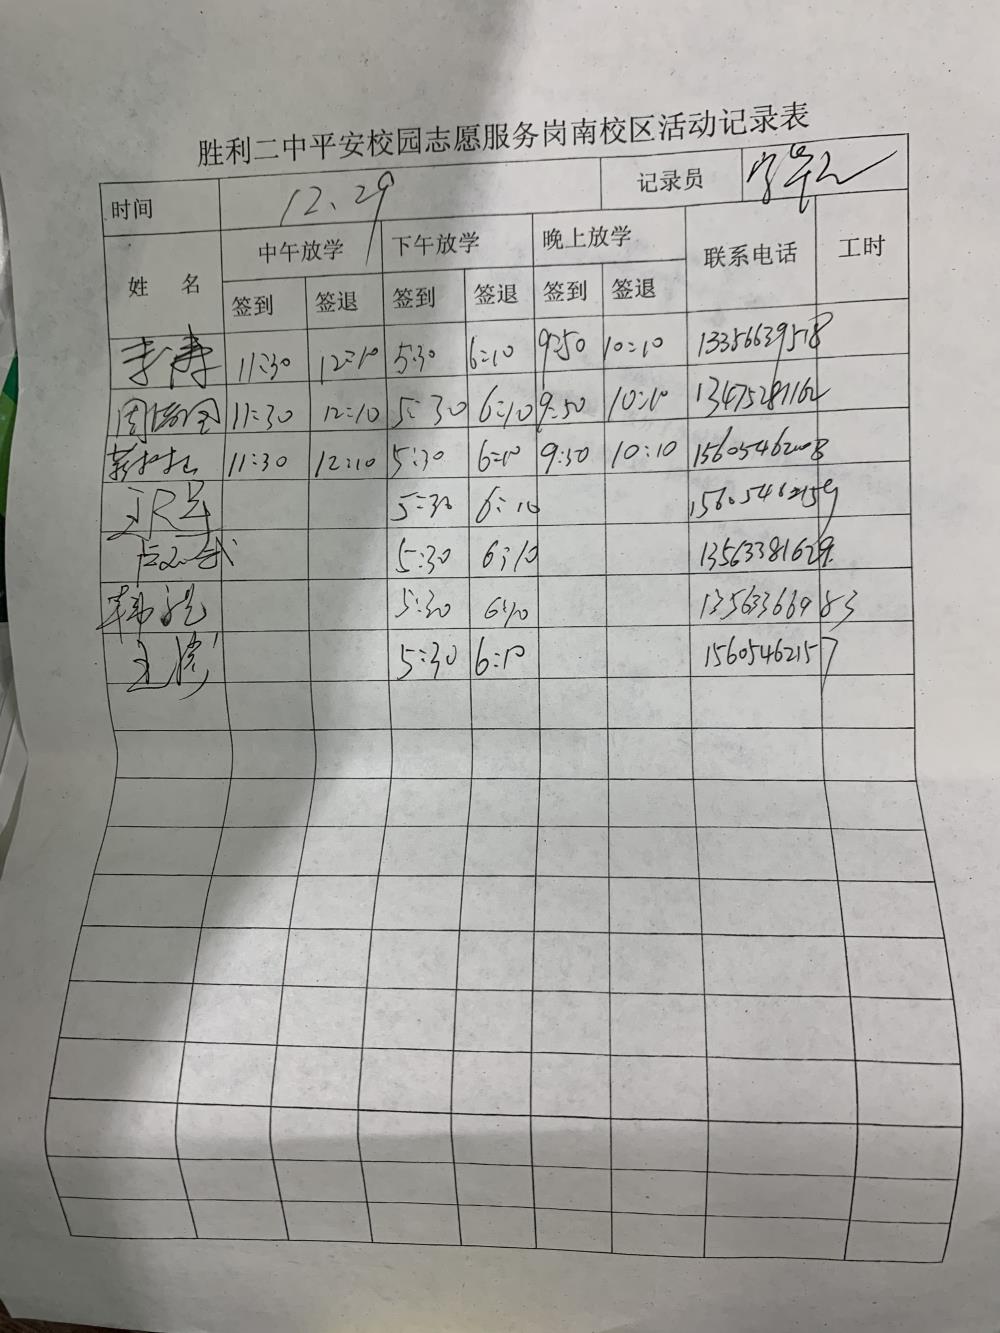 胜利二中平安校园志愿服务岗南校区活动记录表
时间 12、29 记录员
姓 名 中午放学 下午放学 晚上放学 联系电话 工时
签到 签退 签到 签退 签到 签退
李涛 11:30 12:10 5:30 6:10 9:50 10:10 13356639518
周培全 11:30 12:10 5:30 6:10 9:50 10:10 13475281162
11:30 12:10 5:30 6:10 9:50 10:10 15605462008
5:30 6:10 15605462159
5:30 6:10 13563381629
韩悦 5:30 6:10 13563366983
王滨 5:30 6:10 15605462157